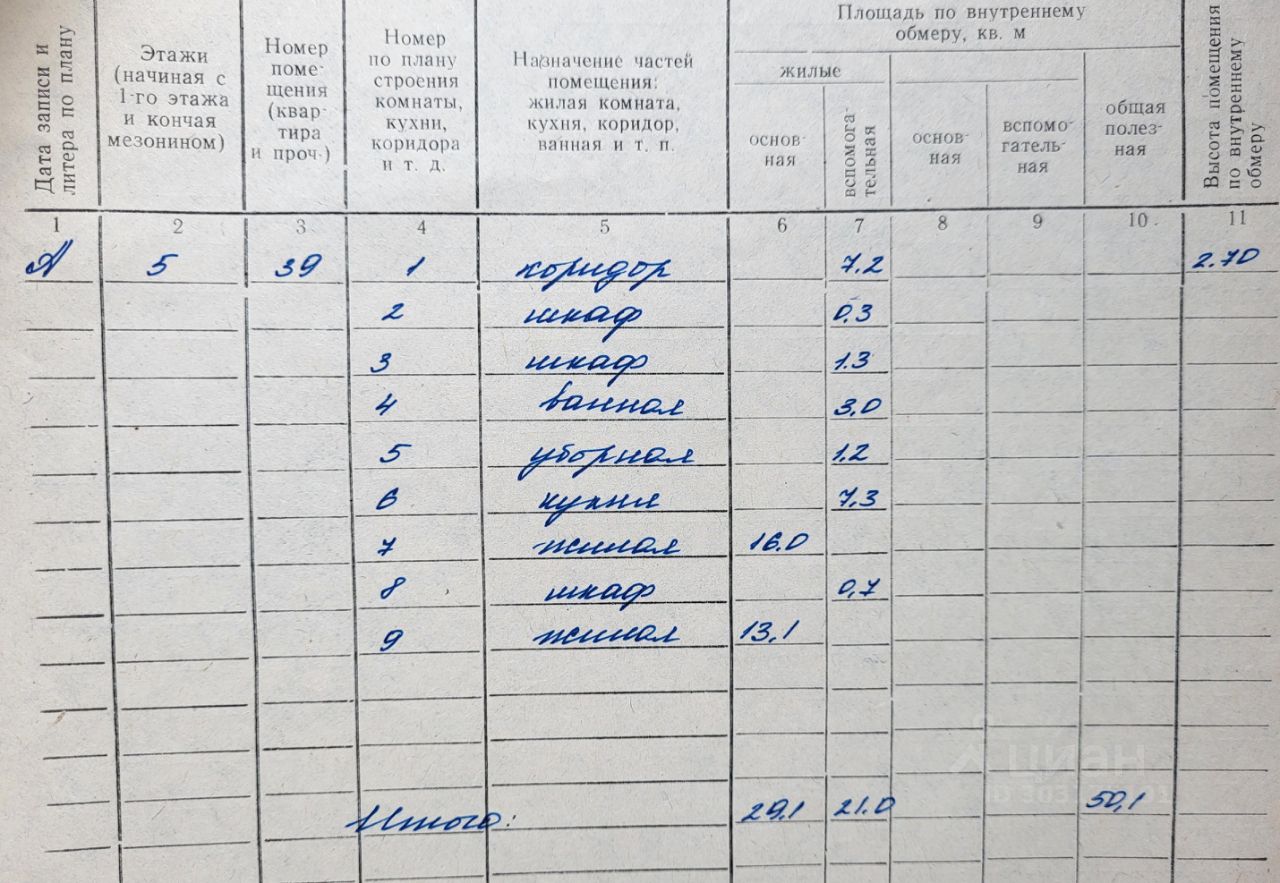 Дата записи и литера по плану
Этажи (начиная с 1-го этажа и кончая мезонином)
Номер помещения (квартира и проч.)
Номер по плану строения комнаты, кухни, коридора и т. д.
Назначение частей помещения: жилая комната, кухня, коридор, ванная и т. п.
Площадь по внутреннему обмеру, кв. м
жилые
основная
вспомогательная
основная
вспомогательная
общая полезная
Высота помещения по внутреннему обмеру
1 2 3 4 5 6 7 8 9 10 11
А 5 39 1 коридор 7.2 2.70
2 шкаф 0.3
3 шкаф 1.3
4 ванная 3,0
5 уборная 1.2
6 кухня 7,3
7 жилая 16.0
8 шкаф 0,7
9 жилая 13,1
Итого: 29,1 21.0 50,1
циан